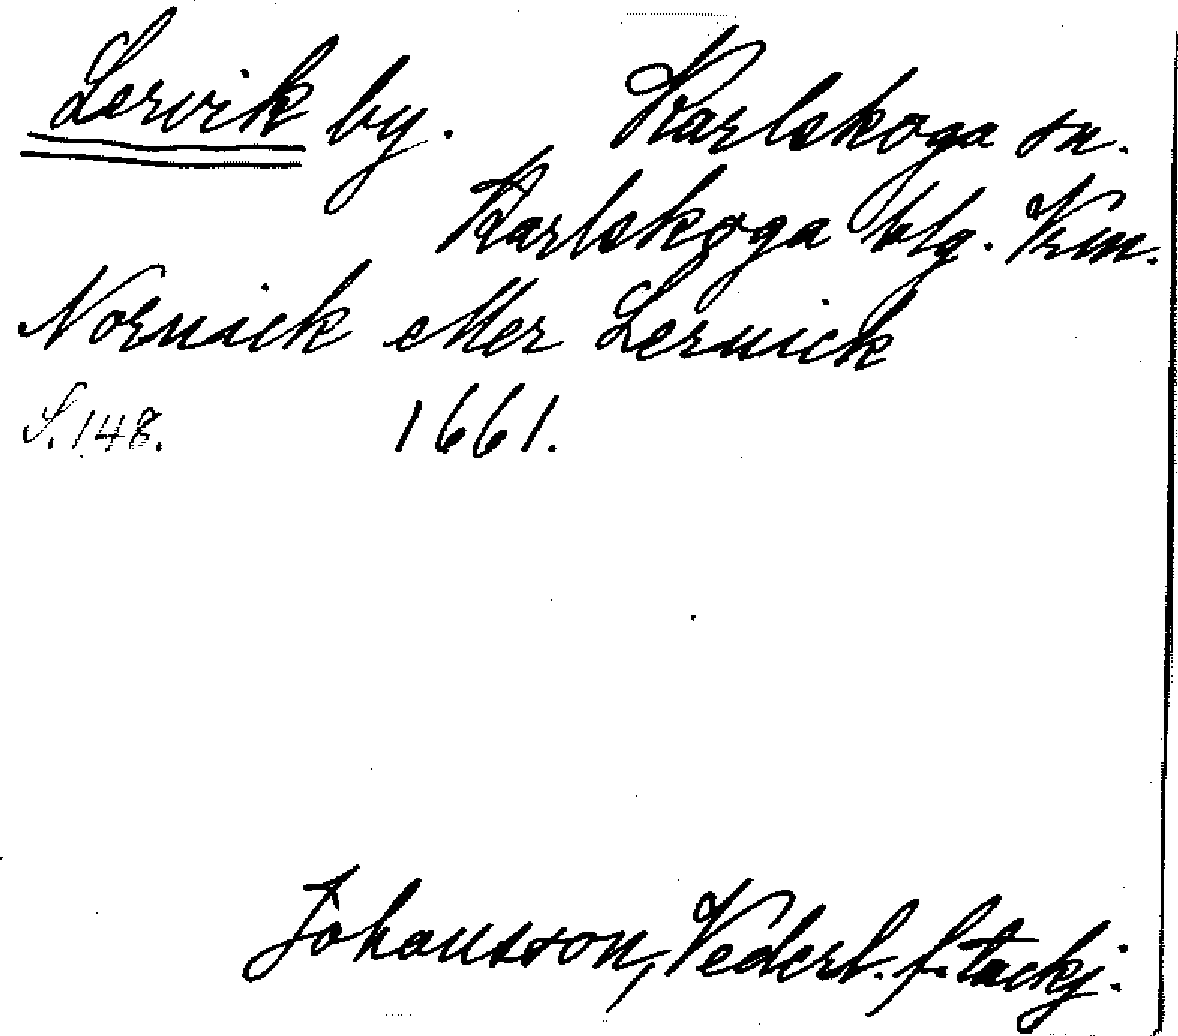 Lervik by. Karlskoga sn.
Karlskoga blg. Vrm.
Noruick eller Leruick
S. 148. 1661.
Johansson, Vederl. f. tackj.